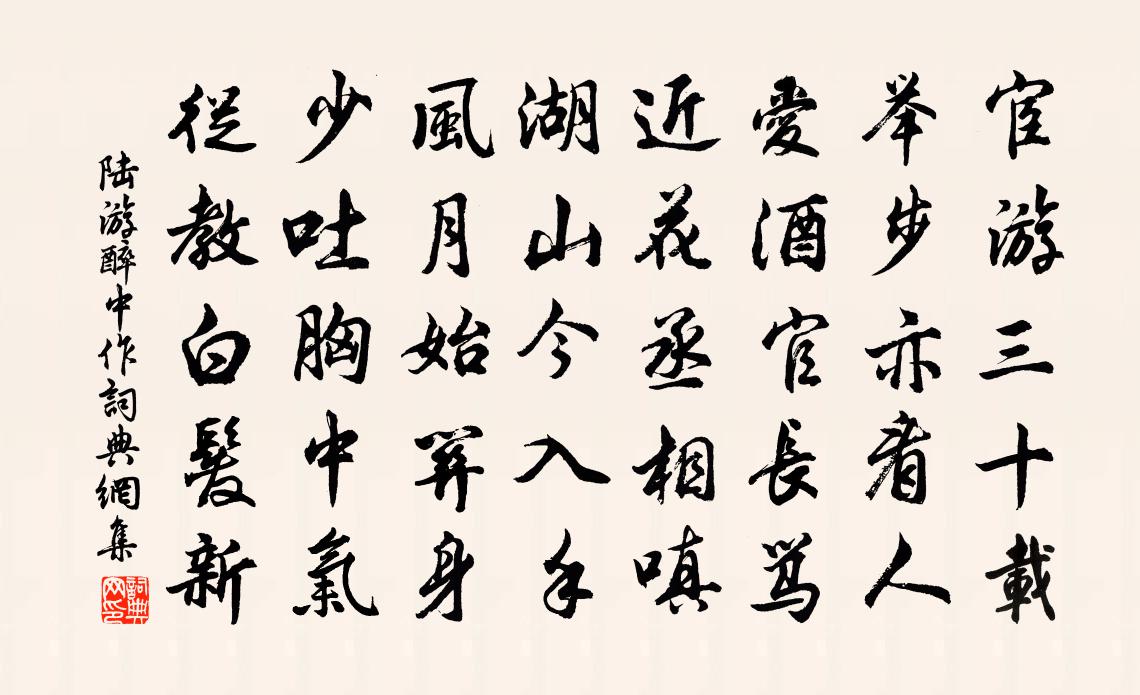 宦游三十載
举步亦看人
愛酒官長骂
近花丞相嗔
湖山今入手
風月始關身
少吐胸中氣
從教白髮新
陆游醉中作詞典網集
詞典网印